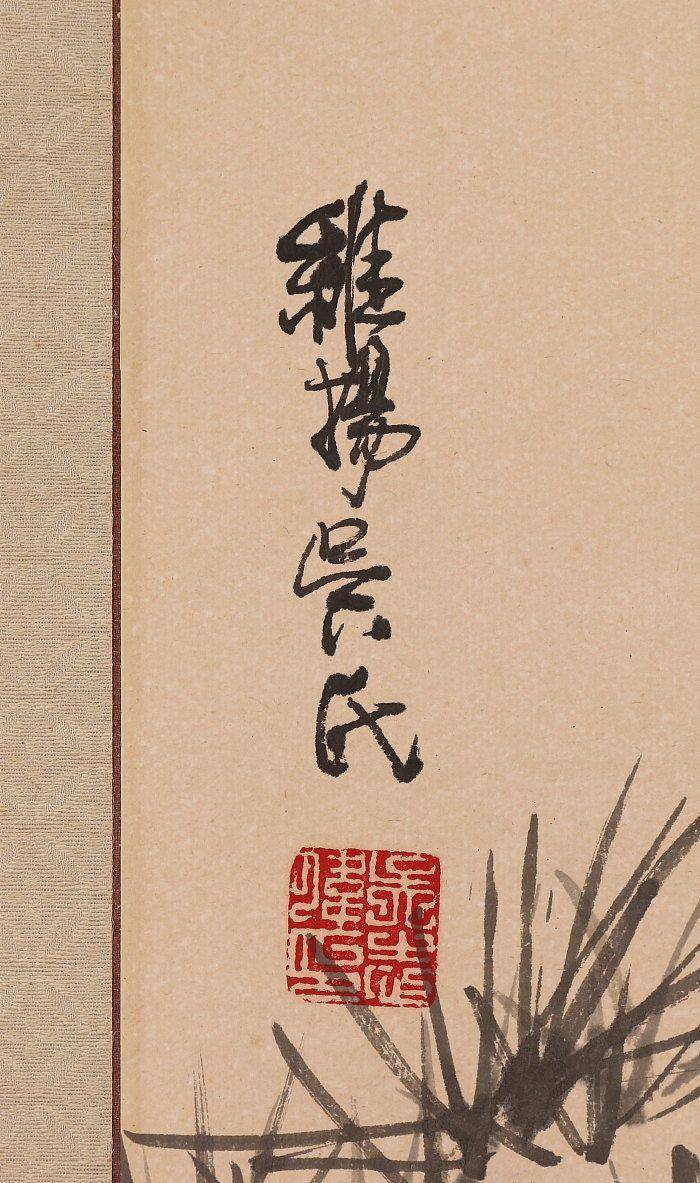 維揚吳氏